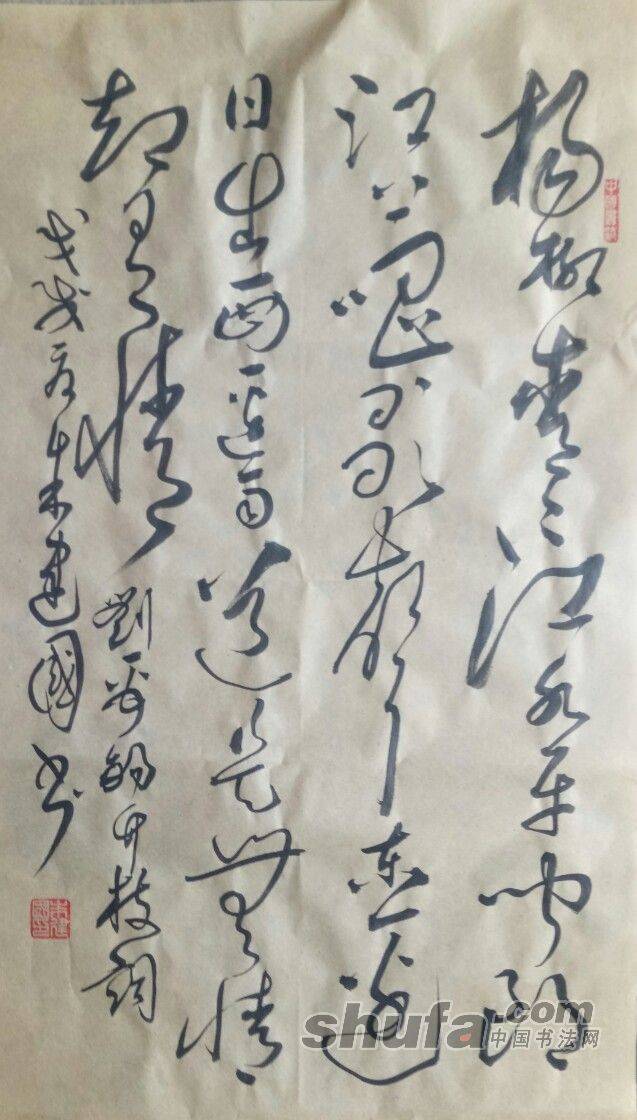 楊柳青々江水平聞郎
江上唱歌聲東邊
日出西邊雨道是無情
却有情劉禹錫竹枝詞
戊戌夏朱建國书
朱建國印
shufa.com
中国书法网